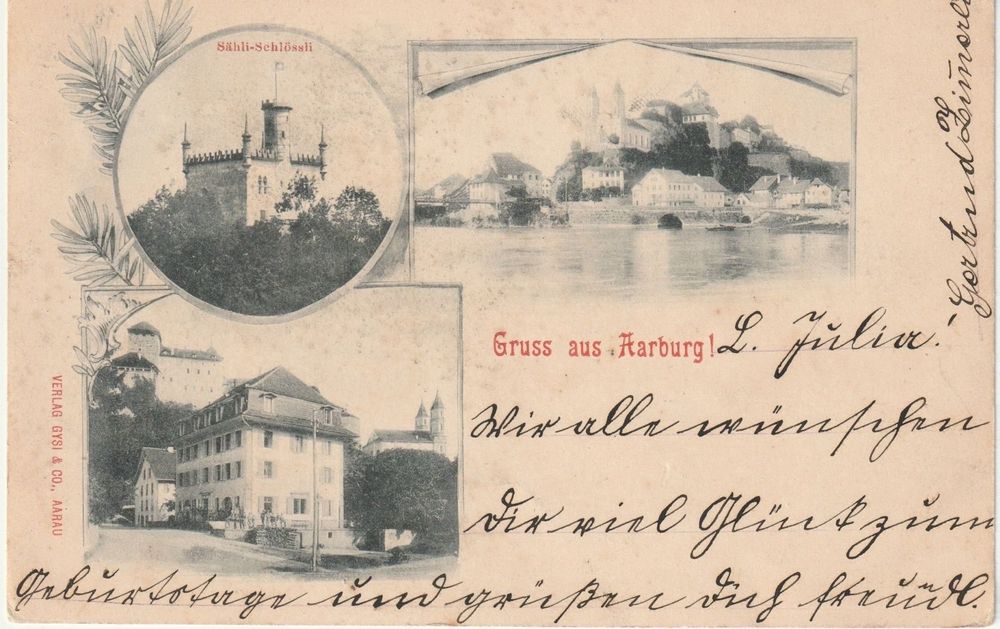 Sähli-Schlössli
Gruss aus Aarburg!
L. Julia!
Wir alle wünschen
Dir viel Glück zum
Geburtstage und grüßen Dich freundl.
Gertrud
VERLAG GYSI & CO., AARAU